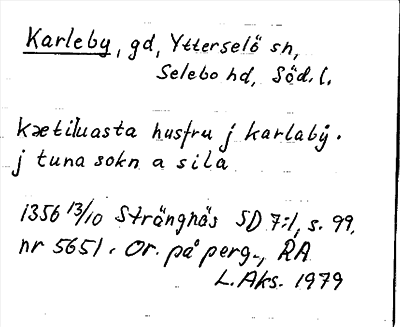 Karleby, gd, Ytterselö sn,
Selebo hd, Söd. l.
kætiluasta husfru j karlabÿ.
j tuna sokn a sila
1356 13/10 Strängnäs SD 7:1, s. 99,
nr 5651. Or. på perg., RA
L. Aks. 1979